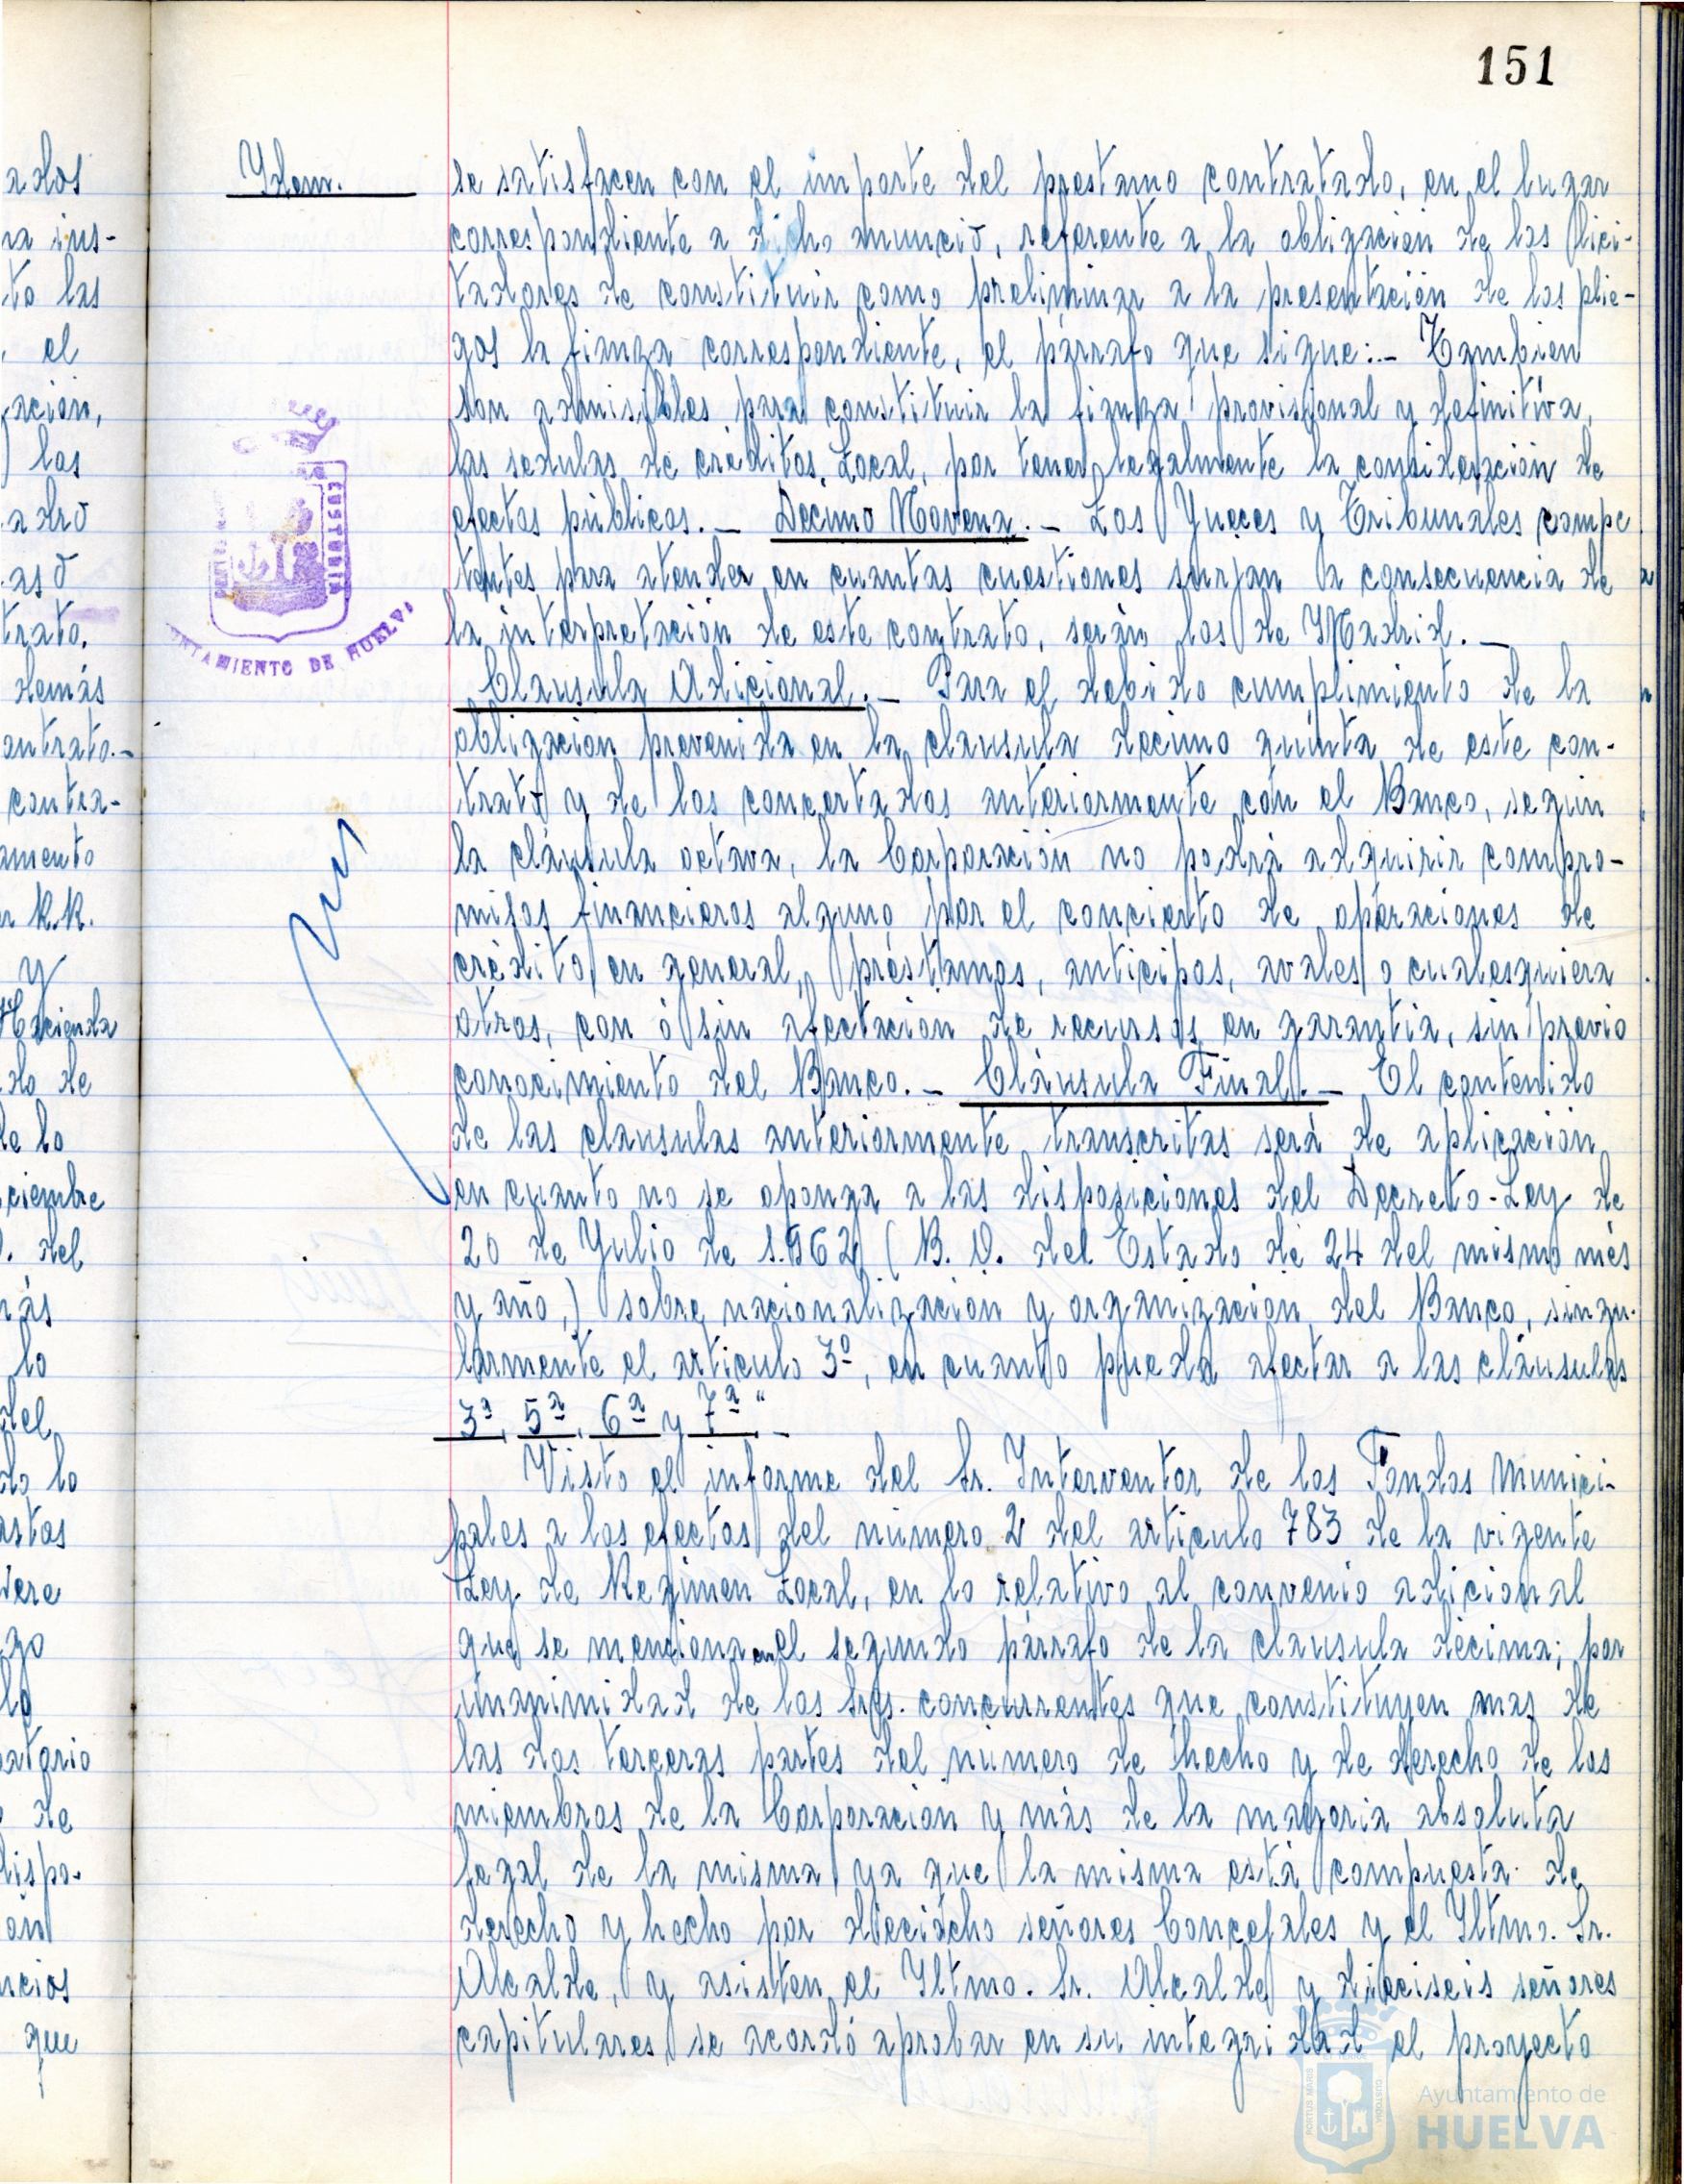 151
Ydem.
se satisfacen con el importe del prestamo contratado, en el lugar
correspondiente a dicho anuncio, referente a la obligación de los lici-
tadores de constituir como preliminar a la presentación de los plie-
gos la fianza correspondiente, el párrafo que sigue:- Tambien
son admisibles para constituir la fianza provisional y definitiva,
las sedulas de créditos Local, por tener legalmente la consideración de
efectos públicos.- Decimo Novena.- Los Jueces y Tribunales compe
tentes para atender en cuantas cuestiones surjan a consecuencia de
la interpretación de este contrato, serán los de Madrid.-
Clausula Adicional.- Para el debido cumplimiento de la
obligación prevenida en la clausula decimo quinta de este con-
trato y de los concertados anteriormente con el Banco, según
la cláusula octava, la Corporación no podrá adquirir compro-
misos financieros alguno por el concierto de operaciones de
crédito en general, préstamos, anticipos, avales o cualesquiera
otros, con ó sin afectación de recursos en garantía, sin previo
conocimiento del Banco.- Cláusula Final.- El contenido
de las clausulas anteriormente transcritas será de aplicación
en cuanto no se oponga a las disposiciones del Decreto-Ley de
20 de Julio de 1.962 (B. O. del Estado de 24 del mismo més
y año,) sobre nacionalización y organización del Banco, singu-
larmente el articulo 3º, en cuanto pueda afectar a las cláusulas
3ª, 5ª, 6ª y 7ª".-
Visto el informe del Sr. Interventor de los Fondos Munici-
pales a los efectos del número 2 del articulo 783 de la vigente
Ley de Regimen Local, en lo relativo al convenio adicional
que se menciona en el segundo párrafo de la clausula décima; por
unanimidad de los Srs. concurrentes que constituyen mas de
las dos terceras partes del número de hecho y de derecho de los
miembros de la Corporación y más de la mayoria absoluta
legal de la misma ya que la misma está compuesta de
derecho y hecho por dieciocho señores Concejales y el Iltmo. Sr.
Alcalde, y asisten el Iltmo. Sr. Alcalde y dieciseis señores
capitulares, se acordó aprobar en su integridad el proyecto
AYUNTAMIENTO DE HUELVA
Ayuntamiento de
HUELVA